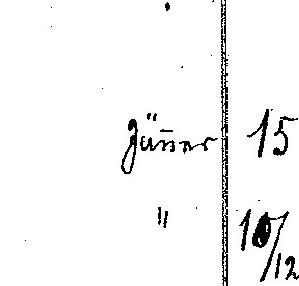 Jänner 15
" 10/12